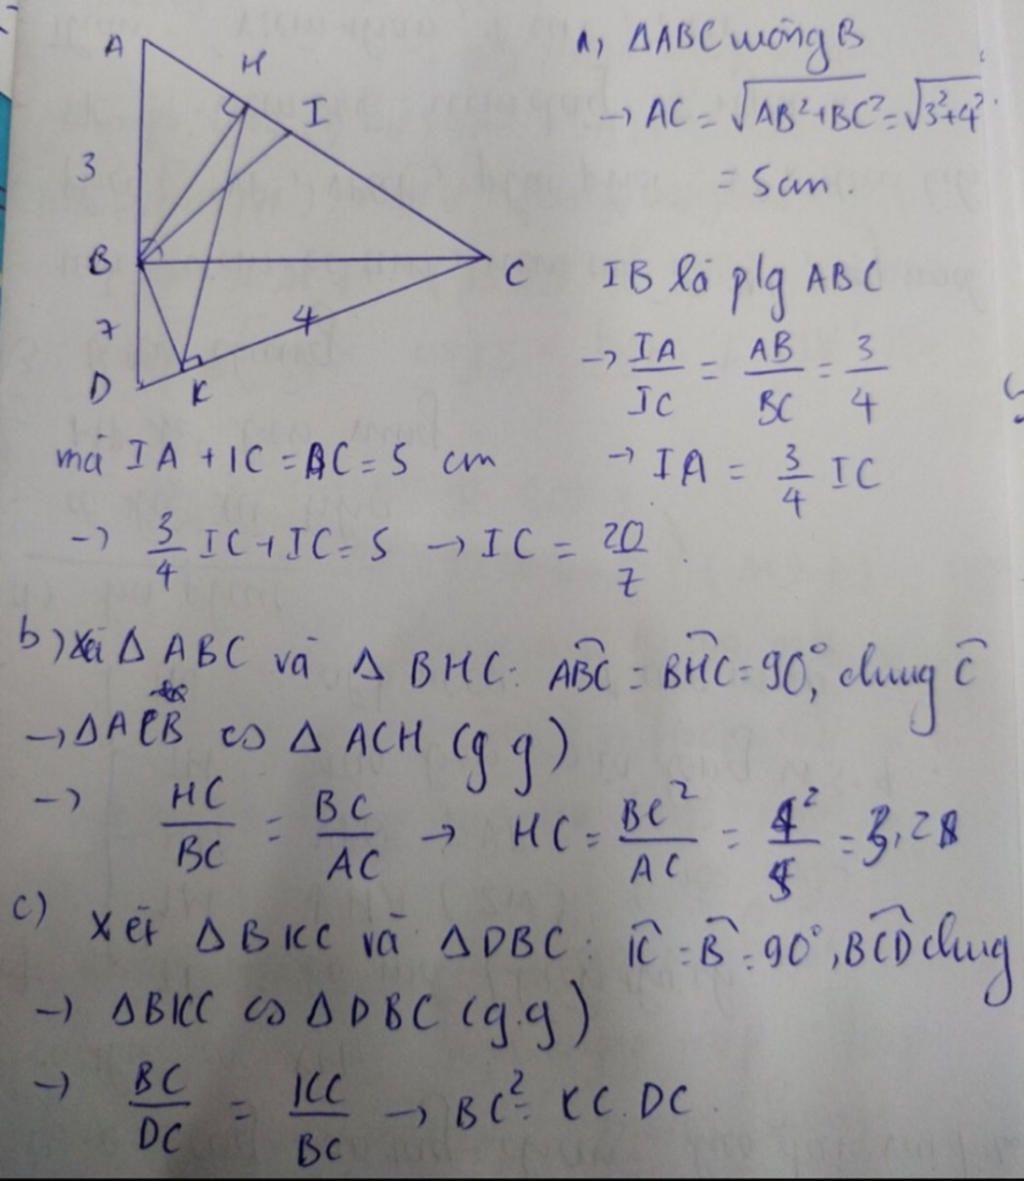 A
H
I
3
B
C
7
4
D
K
a, ΔABC vuông B
→ AC = √AB²+BC² = √3²+4²
= 5cm.
IB là p/g ABC
→ IA/IC = AB/BC = 3/4
→ IA = 3/4 IC
mà IA + IC = AC = 5 cm
→ 3/4 IC + IC = 5 → IC = 20/7.
b) Xét Δ ABC và Δ BHC: ABC = BHC = 90°, chung C
→ ΔACB ∽ Δ ACH (g g)
→ HC/BC = BC/AC → HC = BC²/AC = 4²/5 = 3,2
c) Xét ΔBKC và ΔDBC: K = B = 90°, BCD chung
→ ΔBKC ∽ ΔDBC (g.g)
→ BC/DC = KC/BC → BC² = KC.DC.